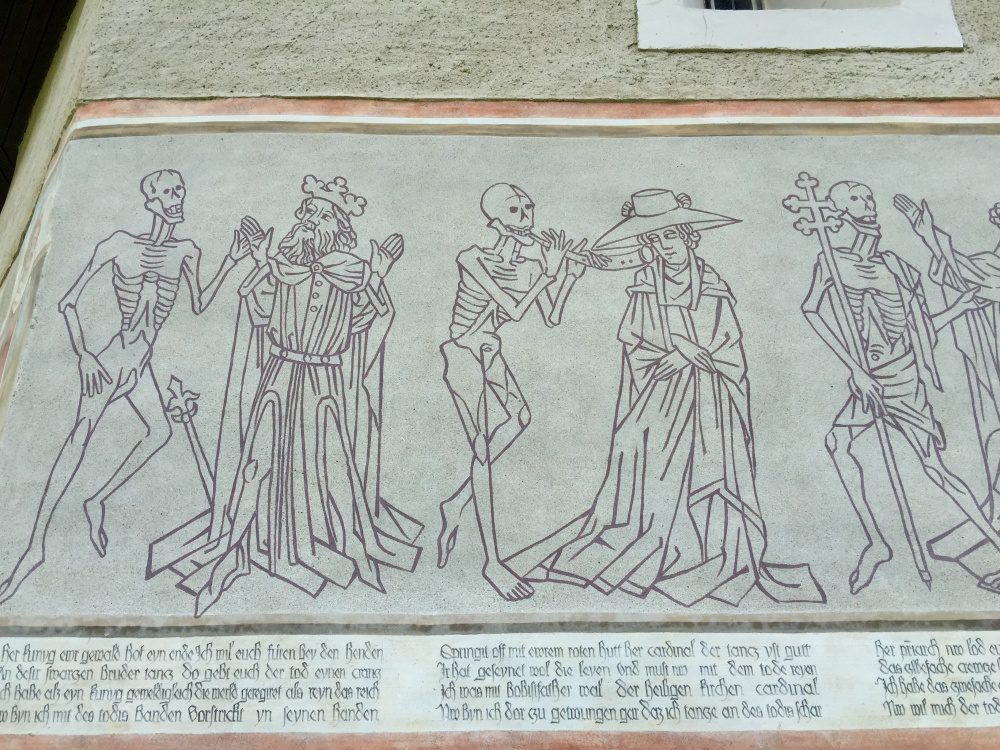 Her kunyg ewr gewald hot eyn ende Ich wil euch füren bey den henden
An deser swarzen bruder tancz Do gebt euch der tod eynen crancz
Ich habe als eyn kunyg geweldigleich die werlt geregiret als reyn das reich
Nw byn ich mit des todis banden Vorstrickt yn seynen handen
Sprungit off mit ewrem roten hutt her cardinal der tancz yst gutt
Ir hat geseynet wol die leyen Vnd must nw mit dem tode reyen
Ich was mit bobistlicher wal der heiligen kirchen cardinal
Nw byn ich dor zu getwungen gar daz ich tancze an des todis schar
Her nw lod
das crewcze
Ich habe das zwefache
Nw wil mich der tod